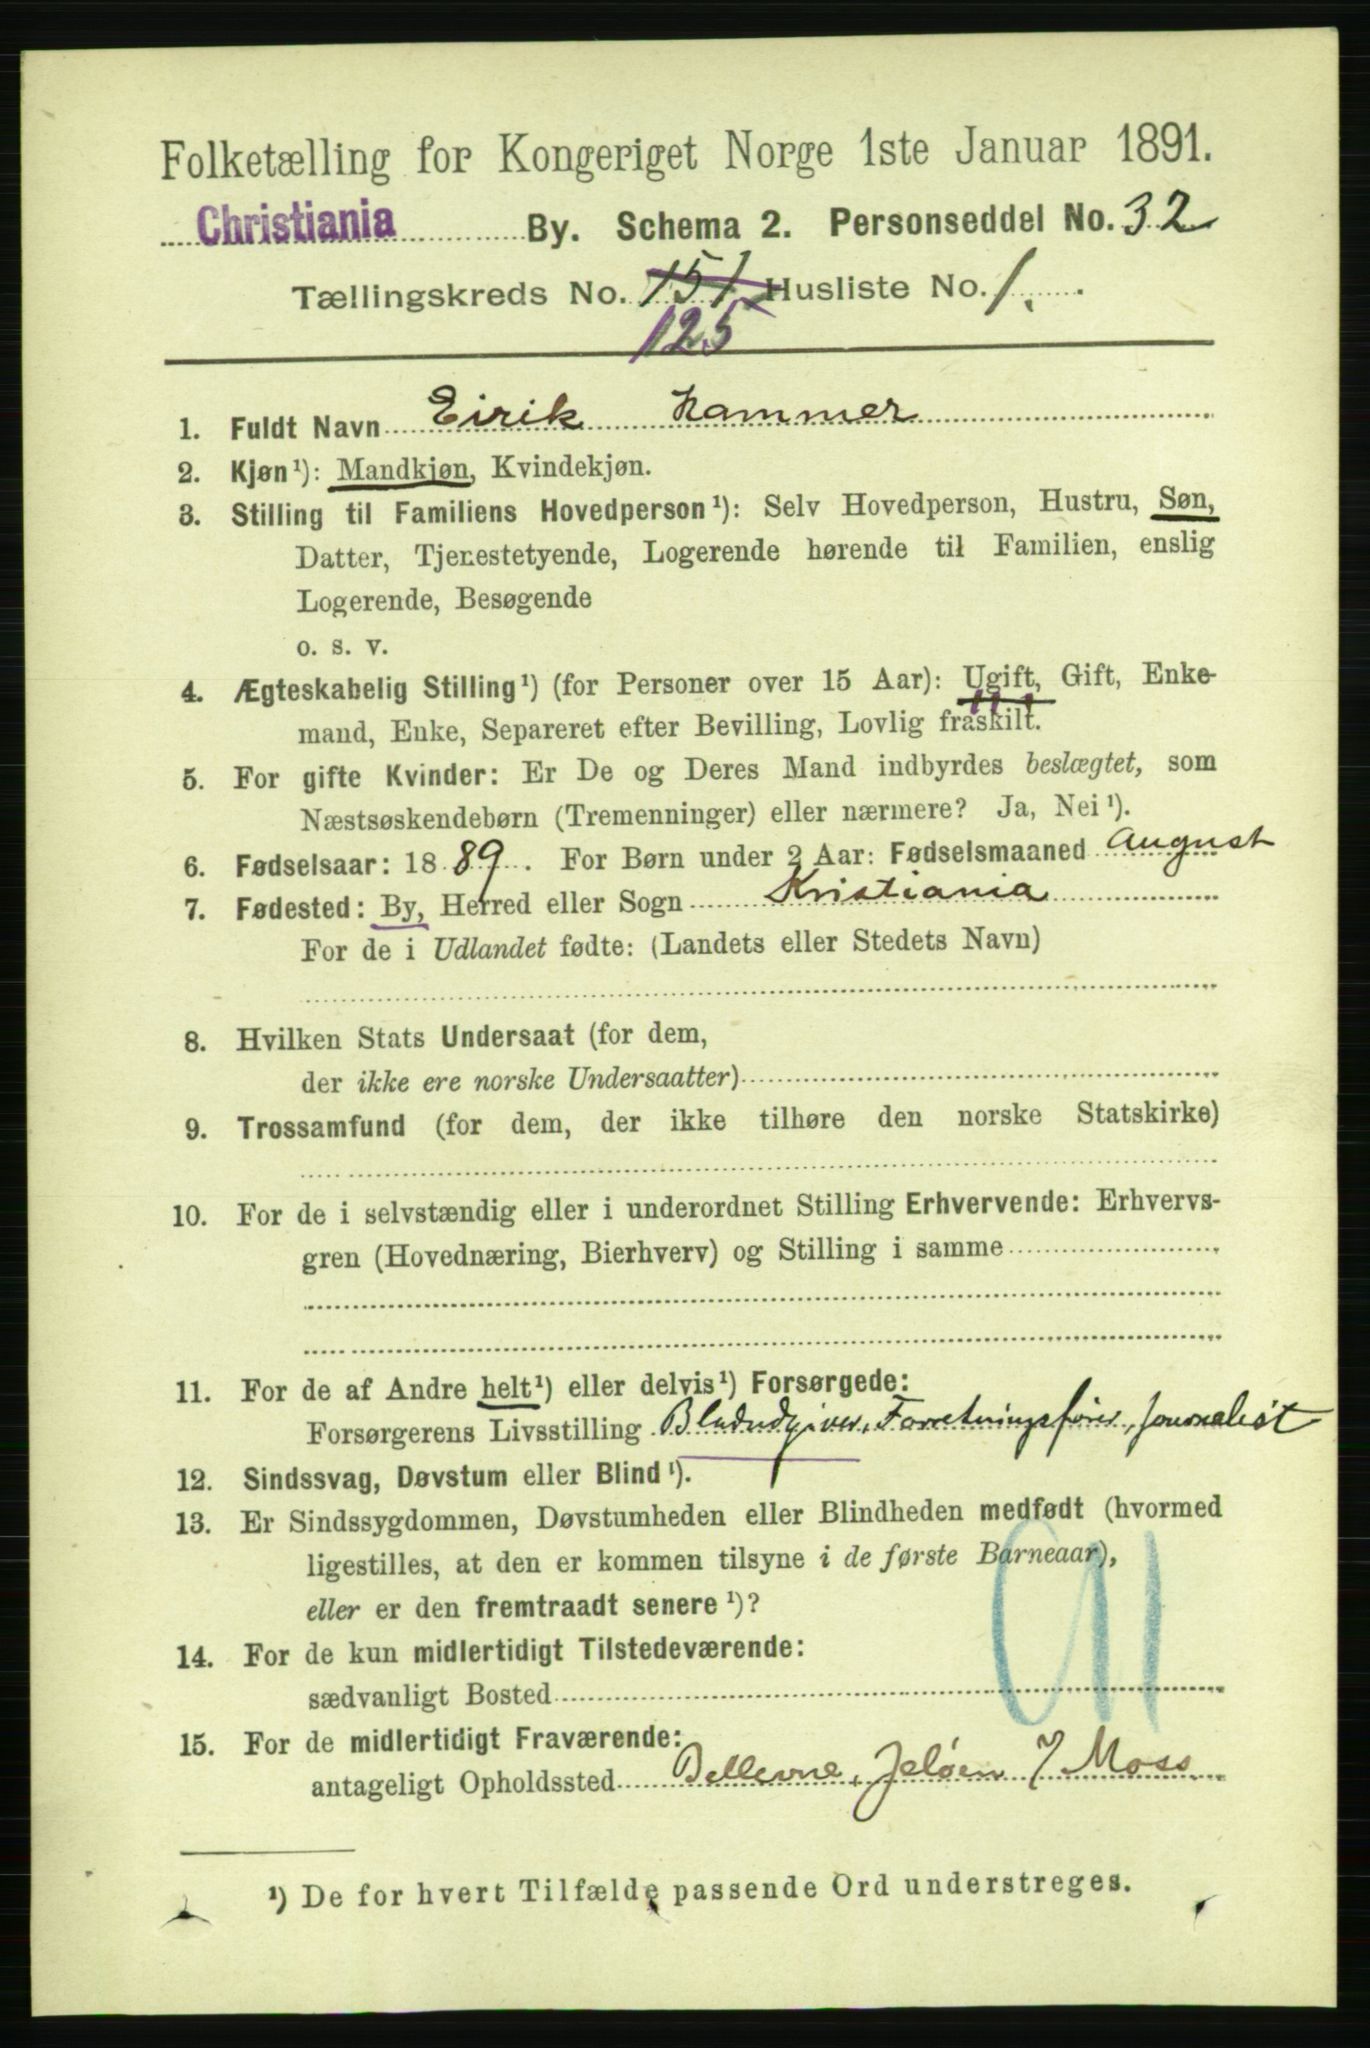 Folketælling for Kongeriget Norge 1ste Januar 1891.
Christiania By. Schema 2. Personseddel No. 32
Tællingskreds No. 151 Husliste No. 1.
125
1. Fuldt Navn Eirik Hammer
2. Kjøn¹): Mandkjøn, Kvindekjøn.
3. Stilling til Familiens Hovedperson¹): Selv Hovedperson, Hustru, Søn,
Datter, Tjenestetyende, Logerende hørende til Familien, enslig
Logerende, Besøgende
o. s. v.
4. Ægteskabelig Stilling¹) (for Personer over 15 Aar): Ugift, Gift, Enke-
mand, Enke, Separeret efter Bevilling, Lovlig fraskilt.
5. For gifte Kvinder: Er De og Deres Mand indbyrdes beslægtet, som
Næstsøskendebørn (Tremenninger) eller nærmere? Ja, Nei¹).
6. Fødselsaar: 1889. For Børn under 2 Aar: Fødselsmaaned August
7. Fødested: By, Herred eller Sogn Kristiania
For de i Udlandet fødte: (Landets eller Stedets Navn)
8. Hvilken Stats Undersaat (for dem,
der ikke ere norske Undersaatter)
9. Trossamfund (for dem, der ikke tilhøre den norske Statskirke)
10. For de i selvstændig eller i underordnet Stilling Erhvervende: Erhvervs-
gren (Hovednæring, Bierhverv) og Stilling i samme
11. For de af Andre helt¹) eller delvis¹) Forsørgede:
Forsørgerens Livsstilling Bladudgiver, Forretningsfører, Journalist
12. Sindssvag, Døvstum eller Blind¹).
13. Er Sindssygdommen, Døvstumheden eller Blindheden medfødt (hvormed
ligestilles, at den er kommen tilsyne i de første Barneaar),
eller er den fremtraadt senere¹)?
14. For de kun midlertidigt Tilstedeværende:
sædvanligt Bosted
91
15. For de midlertidigt Fraværende:
antageligt Opholdssted Bellevue, Jeløen / Moss
¹) De for hvert Tilfælde passende Ord understreges.